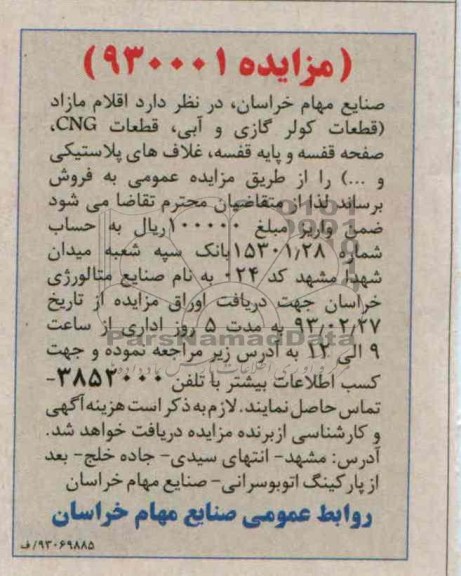 (مزایده ۹۳۰۰۰۱)
صنایع مهام خراسان، در نظر دارد اقلام مازاد
(قطعات کولر گازی و آبی، قطعات CNG،
صفحه قفسه و پایه قفسه، غلاف های پلاستیکی
و ...) را از طریق مزایده عمومی به فروش
برساند لذا از متقاضیان محترم تقاضا می شود
ضمن واریز مبلغ ۱۰۰۰۰۰ریال به حساب
شماره ۱۵۳۰۱٫۲۸بانک سپه شعبه میدان
شهدا مشهد کد ۰۲۴ به نام صنایع متالورژی
خراسان جهت دریافت اوراق مزایده از تاریخ
۹۳/۰۲/۲۷ به مدت ۵ روز اداری از ساعت
۹ الی ۱۲ به آدرس زیر مراجعه نموده و جهت
کسب اطلاعات بیشتر با تلفن ۳۸۵۲۰۰۰-
تماس حاصل نمایند. لازم به ذکر است هزینه آگهی
و کارشناسی ازبرنده مزایده دریافت خواهد شد.
آدرس: مشهد- انتهای سیدی- جاده خلج- بعد
از پارکینگ اتوبوسرانی- صنایع مهام خراسان
روابط عمومی صنایع مهام خراسان
۹۳۰۶۹۸۸۵/ف
ParsNamadData